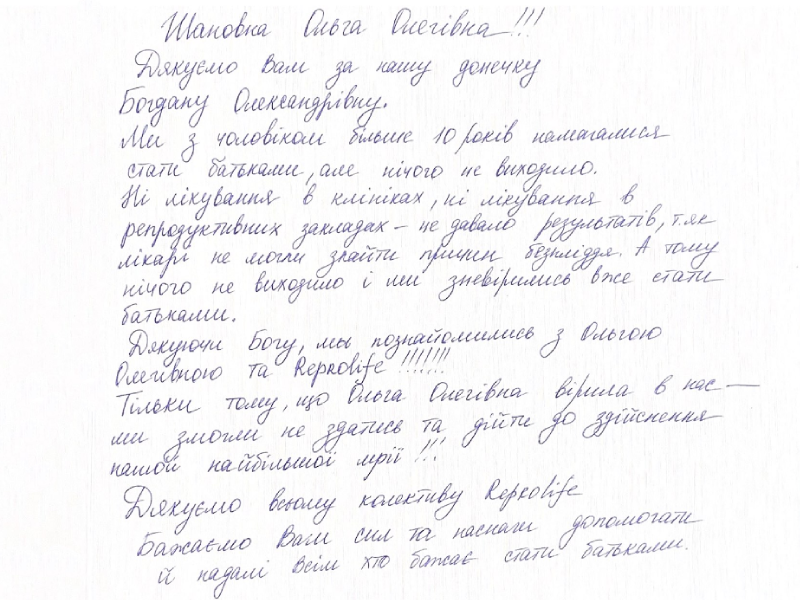 Шановна Ольга Олегівна!!!
Дякуємо Вам за нашу донечку
Богдану Олександрівну.
Ми з чоловіком більше 10 років намагалися
стати батьками, але нічого не виходило.
Ні лікування в клініках, ні лікування в
репродуктивних закладах – не давало результатів, т.як
лікарі не могли знайти причин безпліддя. А тому
нічого не виходило і ми зневірились вже стати
батьками.
Дякуючи Богу, мы познайомились з Ольгою
Олегівною та Reprolife!!!!!!!
Тільки тому, що Ольга Олегівна вірила в нас —
ми змогли не здатись та дійти до здійснення
нашой найбільшої мрії!!!
Дякуємо всьому колективу Reprolife
Бажаємо Вам сил та наснаги допомогати
й надалі Всім хто бажає стати батьками.